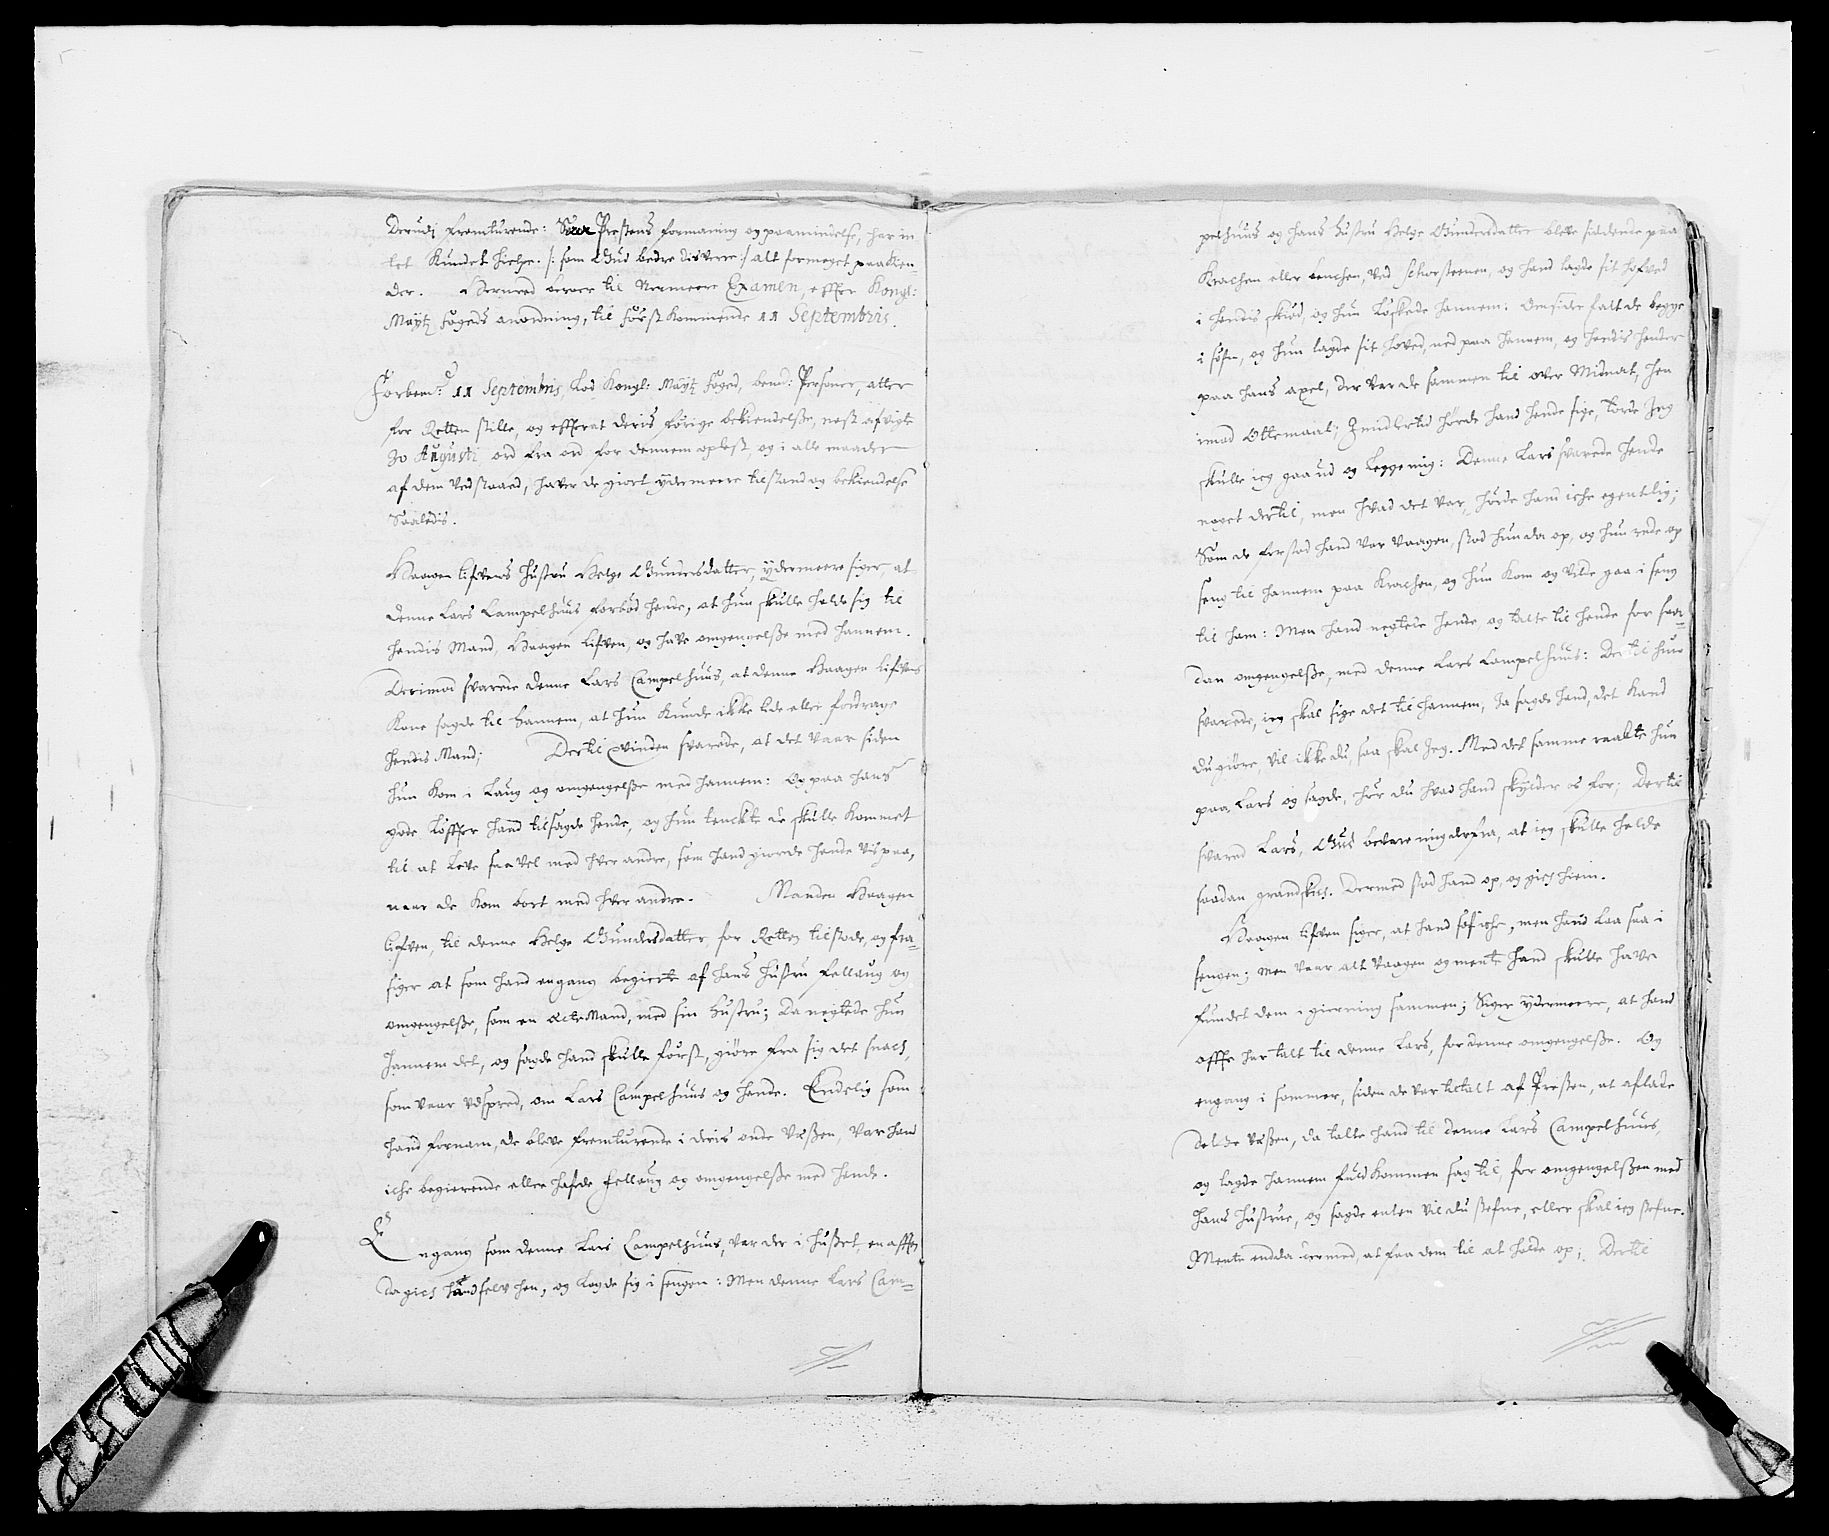 derudj fremturende: Saa Prestens formaning og paamindelse, har in
tet Kundet hielpe. /: som Gud bedre disverre :/ alt formeget paaKien-
der. Dermed beroer til Nermeere Examen, effter Kongl:
Maytz fogeds anordning, til først Kommende 11 Septembris.
Forbem:te 11 Septembris, Lod Kongl: Maytz foged, bemd: Personer, atter
for Retten stille, og effterat deris forige bekiendelße, nest afvigte
30 Augusti ord fra ord for dennem oplest, og i alle maader
af dem vedstaaed, haver de giort ydermeere tilstand og bekiendelse
Saaledis.
Haagen Lifvens hustru Helge Gundersdatter, ydermeere siger at
denne Lars Campelhuus forbød hende, at hun skulle holde sig til
hendis Mand, Haagen Lifven, og have omgengelße med hannem.
Derimod svarede denne Lars Campelhuus, at denne Haagen Lifvens
Kone sagde til hannem, at hun Kunde ikke lide eller fordrage
hendis Mand; Dertil qvinden svarede, at det vaar siden
hun Kom i Laug og omgengelße med hannem: Og paa hans
gode Løffter hand tilsagde hende, og hun tenckte de skulle Kommet
til at Leve saa vel med hver andre, som hand giorde hende vis paa,
naar de Kom bort med hver andre. Manden Haagen
Lifven, til denne Helge Gundersdatter, for Retten tilstode, og fra-
siger at som hand engang begierte af hans hustru fellaug og
omgengelße, som en ecte Mand, med sin hustru; da negtede hun
hannem det, og sagde hand skulle først, giøre fra sig det snach,
som vaar udspred, om Lars Campelhuus og hende. Endelig som
hand fornam, de bleve fremturende i deris onde vesßen, var hand
iche begierende eller hafde fellaug og omgengelße med hende.
Engang som denne Lars Campelhuus, var der i hußet, en afften
da gich hand selv hen, og Lagde sig i sengen: Men denne Lars Cam-
pelhuus og hans hustru Helge Gundersdatter bleve siddende paa
Krachen eller benchen, ved schorsteenen, og hand lagde sit hofved
i hendis skiød, og hun Løskede hannem: Omsider falt de begge
i søfn, og hun lagde sit hoved, ned paa hannem, og hendis hender
paa hans axel, der var de sammen til over Midnat, hen
imod Ottemaal; Imidlertid hørde hand hende sige, torde Jeg
skulle ieg gaa ud og Legge mig: Denne Lars svarede hende
noget dertil, men hvad det var, hørde hand iche egentlig;
Som de forstod hand var vaagen, stod hun da op, og hun rede op
seng til hannem paa Krachen, og hun Kom og vilde gaa i seng
til ham: Men hand negtede hende, og talte til hende for saa-
dan omgengelße, med denne Lars Campelhuus: Dertil hun
svarede, ieg skal sige det til hannem, Ja sagde hand, det Kand
du giøre, vil ikke du, saa skal Jeg. Med det samme raabte hun
paa Lars og sagde, hør du hvad hand skylder os for; Dertil
svared Lars, Gud bevare mig derfra, at ieg skulle holde
saadan grandskab. Dermed stod hand op, og gich hiem.
Haagen Lifven siger, at hand sof iche, men hand Laa saa i
sengen; men vaar alt vaagen og mente hand skulle have
fundet dem i gierning sammen; Siger ydermeere, at hand
offte har talt til denne Lars, for denne omgengelße. Og
engang i sommer, siden de var tiltalt af Presten, at aflade
dette veßen, da talte hand til denne Lars Campelhuus,
og lagde hannem fuldKommen sag til, for omgengelßen med
hans hustrue, og sagde enten vil du stefne, eller skal ieg stefne.
Mente endda dermed, at faa dem til at holde op; Dertil